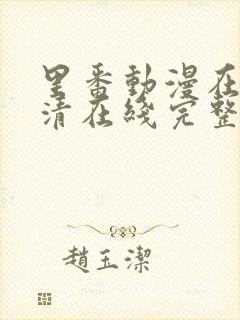 里番動漫在
清在綫完整
趙玉潔